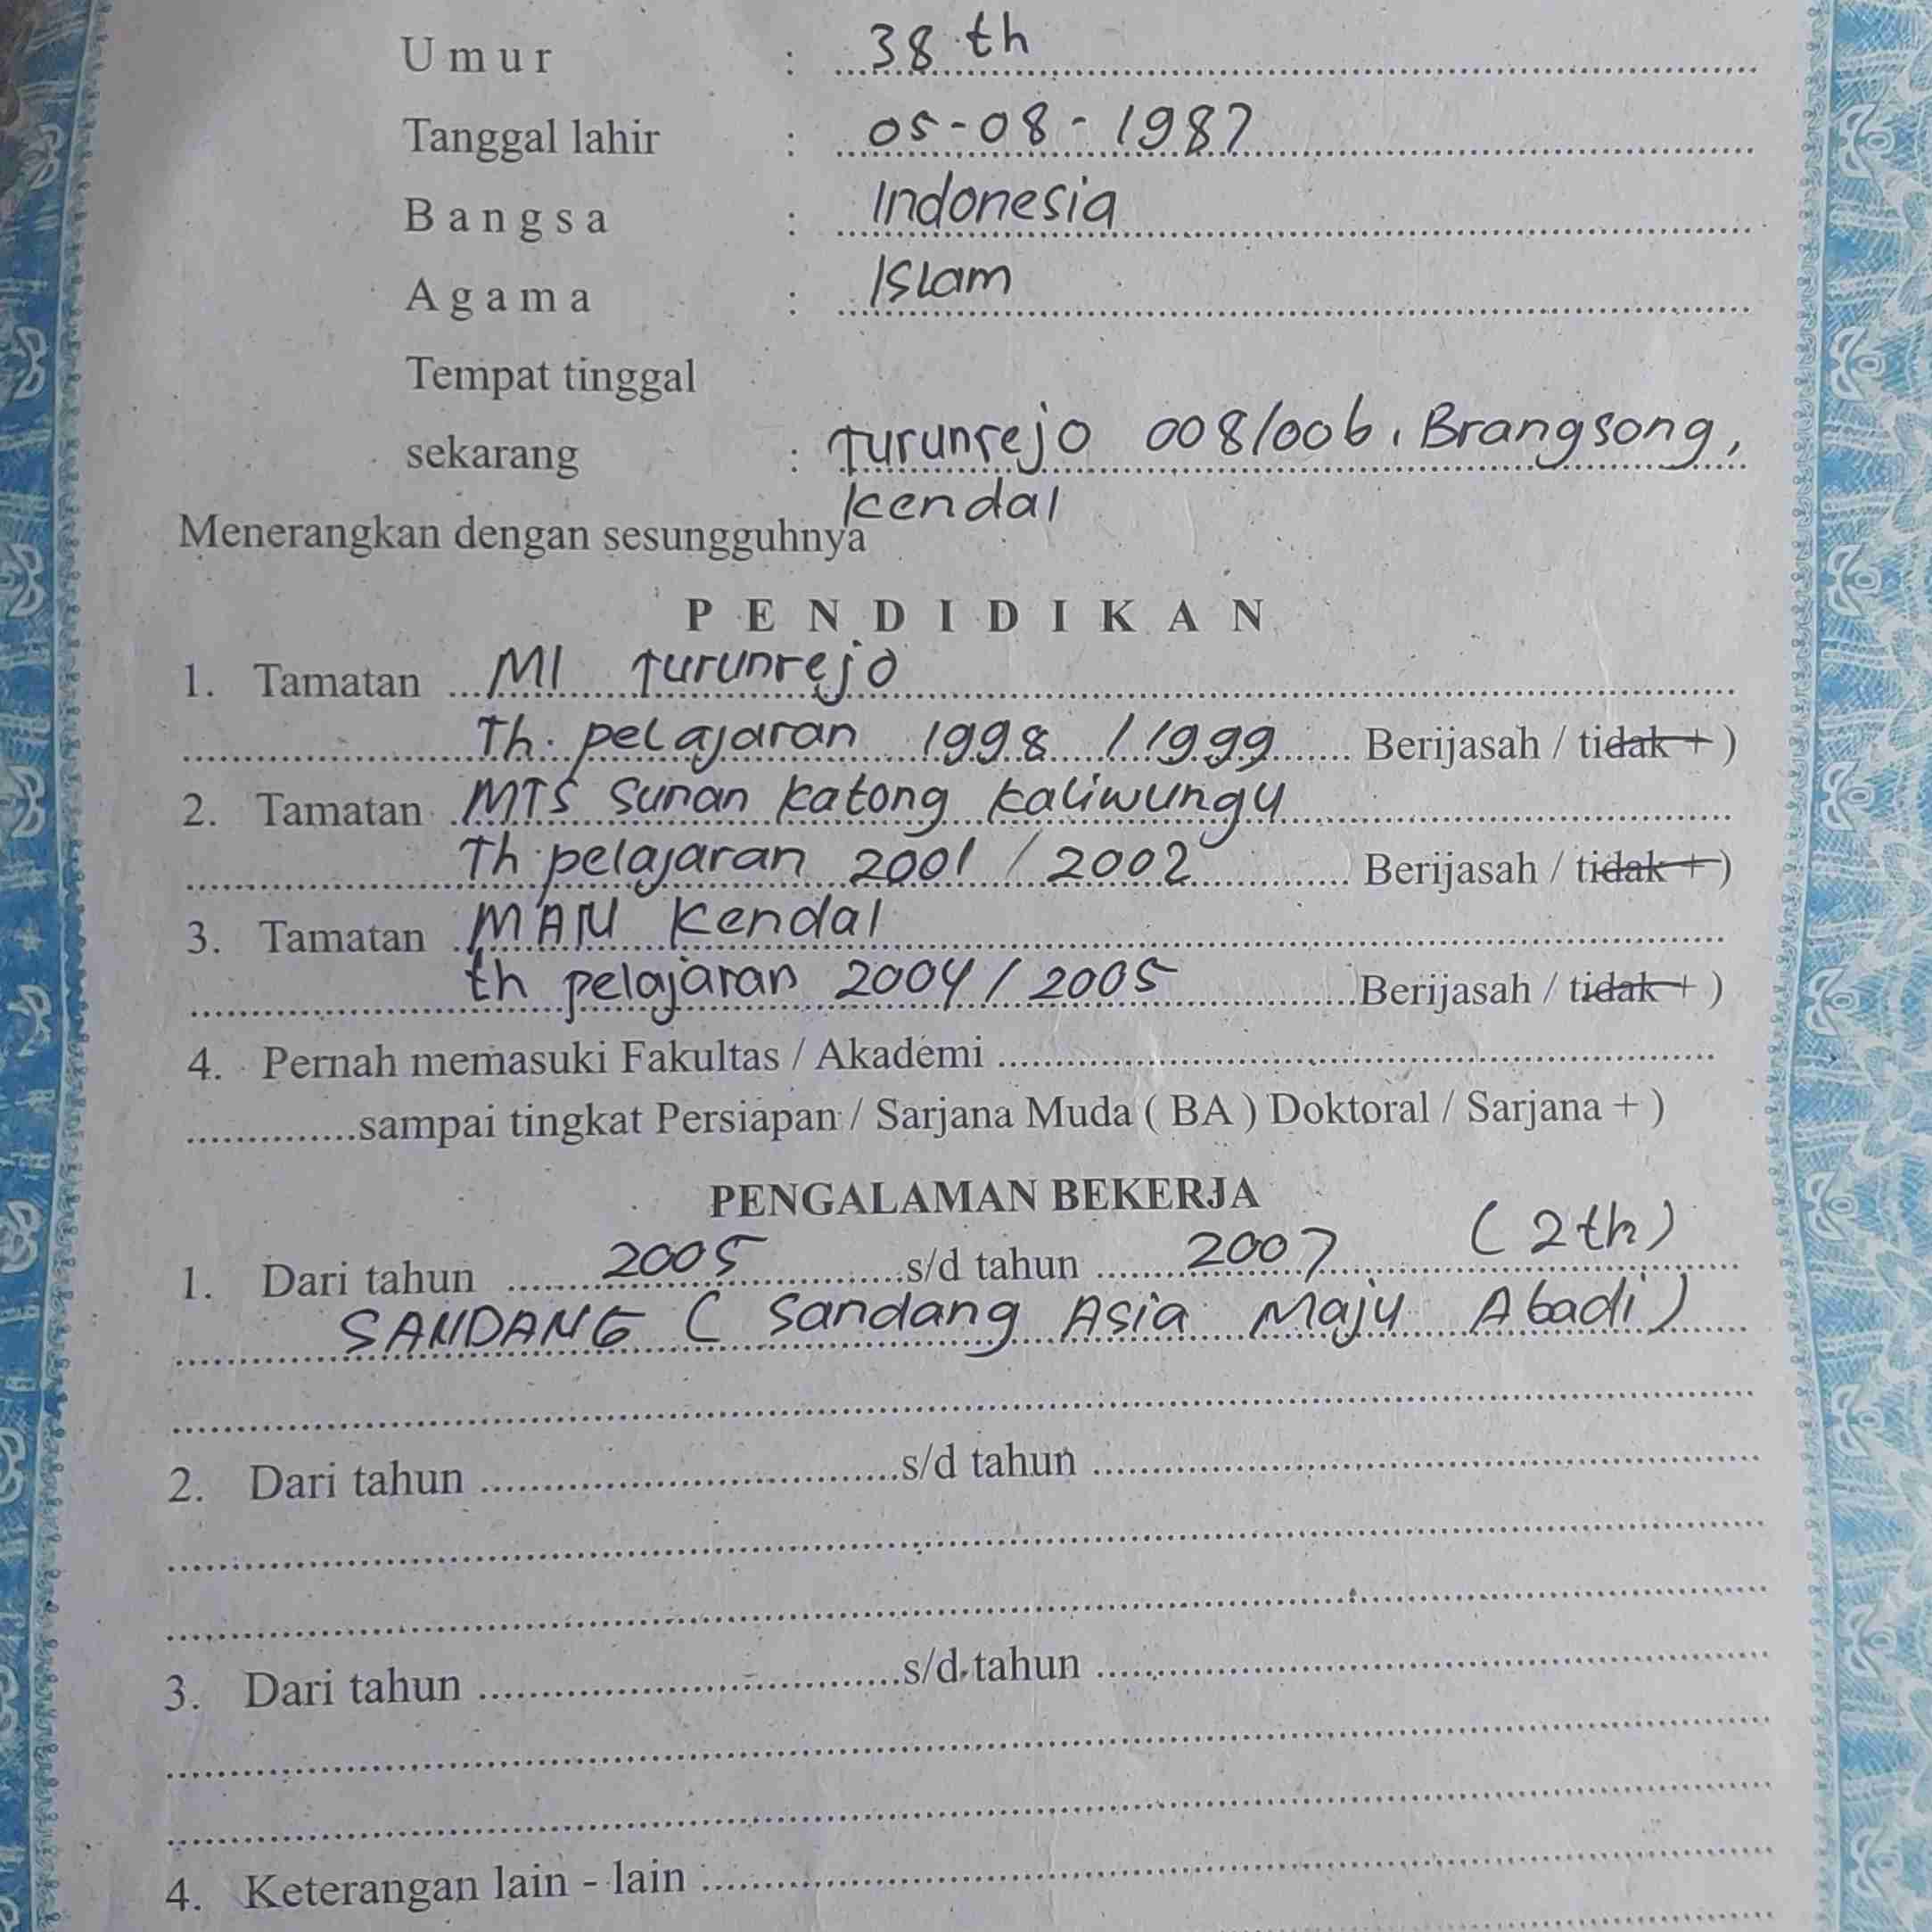 Umur : 38 th
Tanggal lahir : 05-08-1987
Bangsa : Indonesia
Agama : Islam
Tempat tinggal
sekarang : Turunrejo 008/006, Brangsong,
Kendal
Menerangkan dengan sesungguhnya
PENDIDIKAN
1. Tamatan MI Turunrejo
Th. pelajaran 1998 / 1999 Berijasah / tidak + )
2. Tamatan MTS Sunan Katong Kaliwungu
Th pelajaran 2001 / 2002 Berijasah / tidak + )
3. Tamatan MAN Kendal
th pelajaran 2004 / 2005 Berijasah / tidak + )
4. Pernah memasuki Fakultas / Akademi
sampai tingkat Persiapan / Sarjana Muda ( BA ) Doktoral / Sarjana + )
PENGALAMAN BEKERJA
1. Dari tahun 2005 s/d tahun 2007 (2th)
SANDANG ( Sandang Asia Maju Abadi )
2. Dari tahun s/d tahun
3. Dari tahun s/d tahun
4. Keterangan lain - lain :